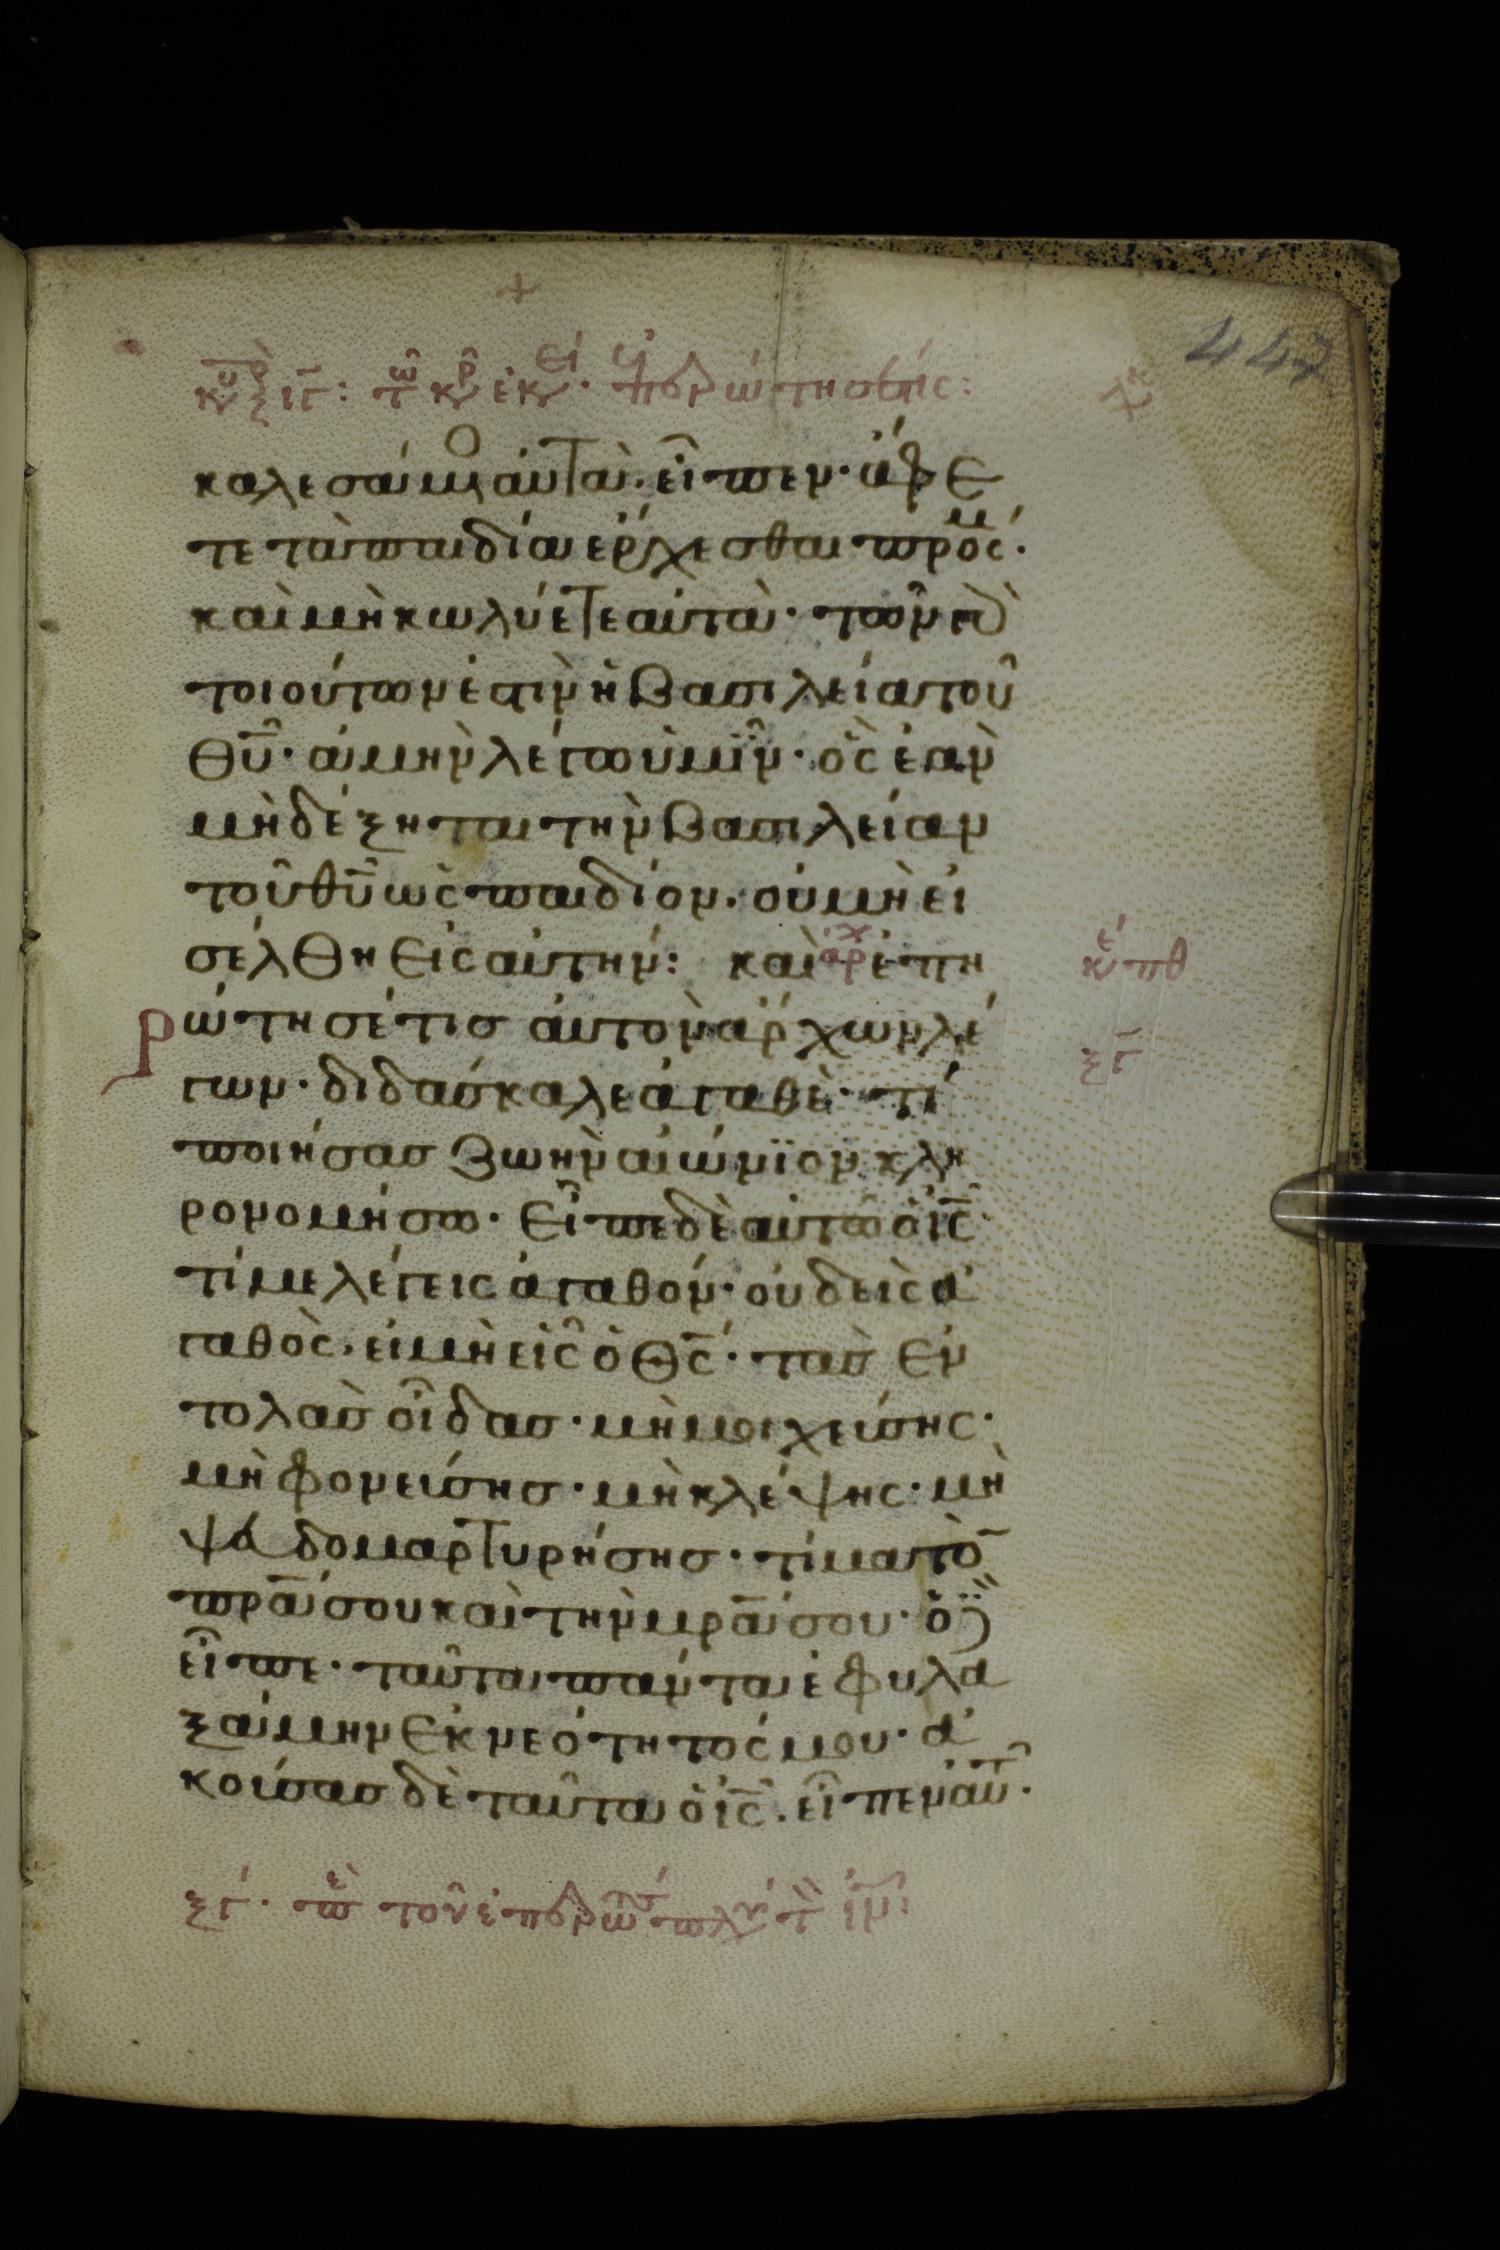 447
καλεσάμενος αὐτὰ. εἶπεν· ἄφε
τε τὰ παιδία ἔρχεσθαι πρός μ.
καὶ μὴ κωλύετε αὐτὰ· τῶν γὰρ
τοιούτων ἐστιν ἡ βασιλεία τοῦ
θῦ· ἀμὴν λέγω ὑμῖν· ὃς ἐὰν
μὴ δέξηται τὴν βασιλείαν
τοῦ θῦ ὡς παιδίον. οὐ μὴ εἰ
σέλθη εἰς αὐτήν: καὶ ἐπη
ρώτησέ τισ αὐτὸν ἄρχων λέ
γων· διδάσκαλε ἀγαθὲ· τί
ποιήσασ ζωὴν αἰώνϊον κλη
ρονομήσω· εἶπε δὲ αὐτῶ ὁ ις·
τί με λέγεις ἀγαθόν· οὐδεὶς ἀ
γαθὸς. εἰ μὴ εἷς ὁ θς· τὰσ ἐν
τολὰσ οἶδασ· μὴ μοιχεύσης·
μὴ φονεύσησ· μὴ κλέψης· μὴ
ψευδομαρτυρήσησ· τίμα τὸν
πρα σου καὶ τὴν μρα σου· ὁ δὲ
εἶπε· ταῦτα πάντα ἐφυλα
ξάμην ἐκ νεότητός μου· ἀ
κούσασ δὲ ταῦτα ὁ ις. εἶπεν αὐτ·